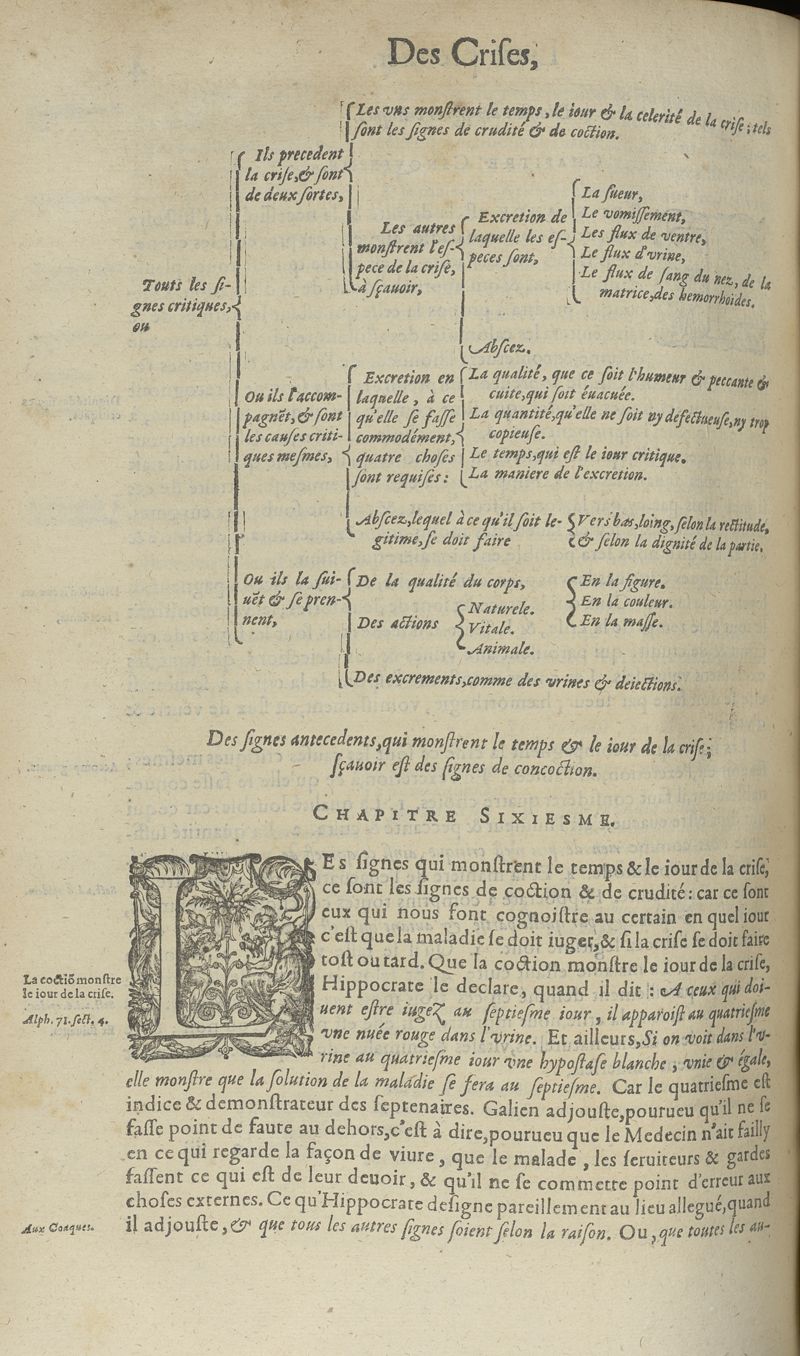 Des Crises,
Les vns monſtrent le temps, le iour & la celerité de la criſe; tels
ſont les ſignes de crudité & de coction.
Ils precedent
la criſe, & ſont
de deux ſortes,
Les autres
monſtrent l'eſ-
pece de la criſe,
à ſçauoir,
Excretion de
laquelle les eſ-
peces ſont,
La ſueur,
Le vomiſſement,
Les flux de ventre,
Le flux d'vrine,
Le flux de ſang du nez, de la
matrice, des hemorrhoides.
Abſcez.
Touts les ſi-
gnes critiques,
ou
Ou ils l'accom-
pagnẽt, & ſont
les cauſes criti-
ques meſmes,
Excretion en
laquelle, à ce
qu'elle ſe faſſe
commodément,
quatre choſes
ſont requiſes:
La qualité, que ce ſoit l'humeur & peccante &
cuite, qui ſoit éuacuée.
La quantité, qu'elle ne ſoit ny defectueuſe, ny trop
copieuſe.
Le temps, qui eſt le iour critique.
La maniere de l'excretion.
Abſcez, lequel à ce qu'il ſoit le-
gitime, ſe doit faire
Vers bas, loing, ſelon la rectitude,
& ſelon la dignité de la partie.
Ou ils la ſui-
uẽt & ſe pren-
nent,
De la qualité du corps,
En la figure.
En la couleur.
En la maſſe.
Des actions
Naturele.
Vitale.
Animale.
Des excrements, comme des vrines & deiections.
Des ſignes antecedents, qui monſtrent le temps & le iour de la criſe;
ſçauoir eſt des ſignes de concoction.
CHAPITRE SIXIESME.
LEs ſignes qui monſtrent le temps & le iour de la criſe,
ce ſont les ſignes de coction & de crudité: car ce ſont
eux qui nous font cognoiſtre au certain en quel iour
c'eſt que la maladie ſe doit iuger, & ſi la criſe ſe doit faire
toſt ou tard. Que la coction monſtre le iour de la criſe,
Hippocrate le declare, quand il dit: A ceux qui doi-
uent eſtre iugez au ſeptieſme iour, il apparoiſt au quatrieſme
vne nuée rouge dans l'vrine. Et ailleurs, Si on voit dans l'v-
rine au quatrieſme iour vne hypoſtaſe blanche, vnie & égale,
elle monſtre que la ſolution de la maladie ſe fera au ſeptieſme. Car le quatrieſme eſt
indice & demonſtrateur des ſeptenaires. Galien adjouſte, pourueu qu'il ne ſe
faſſe point de faute au dehors, c'eſt à dire, pourueu que le Medecin n'ait failly
en ce qui regarde la façon de viure, que le malade, les ſeruiteurs & gardes
faſſent ce qui eſt de leur deuoir, & qu'il ne ſe commette point d'erreur aux
choſes externes. Ce qu'Hippocrate deſigne pareillement au lieu allegué, quand
il adjouſte, & que tous les autres ſignes ſoient ſelon la raiſon. Ou, que toutes les au-
La coctiõ monſtre
le iour de la criſe.
Aph. 71. ſect. 4.
Aux Coaques.